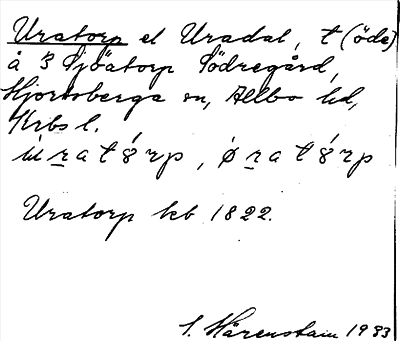 Uratorp el Uradal, t (öde)
å 3 Sjöatorp Södregård,
Hjortsberga sn, Allbo hd,
Krbs l.
ú r a t ȣ́ r p , ǿ r a t ȣ́ r p
Uratorp kb 1822.
S. Härenstam 1933